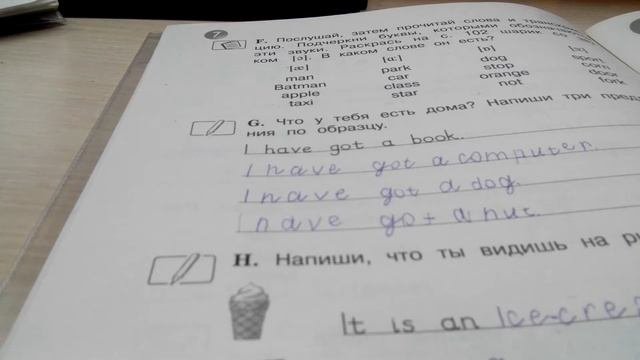 7
F. Послушай, затем прочитай слова и транскрип-
цию. Подчеркни буквы, которыми обозначаются
эти звуки. Раскрась на с. 102 шарик со
ком [ɔ]. В каком слове он есть?
[æ] [ɑ:] [ɒ] [ɔ:]
man park dog sport
Batman car stop corn
apple class orange door
taxi star not fork
G. Что у тебя есть дома? Напиши три предложе-
ния по образцу.
I have got a book.
I have got a computer.
I have got a dog.
I have got a nut.
H. Напиши, что ты видишь на
It is an Ice-cre